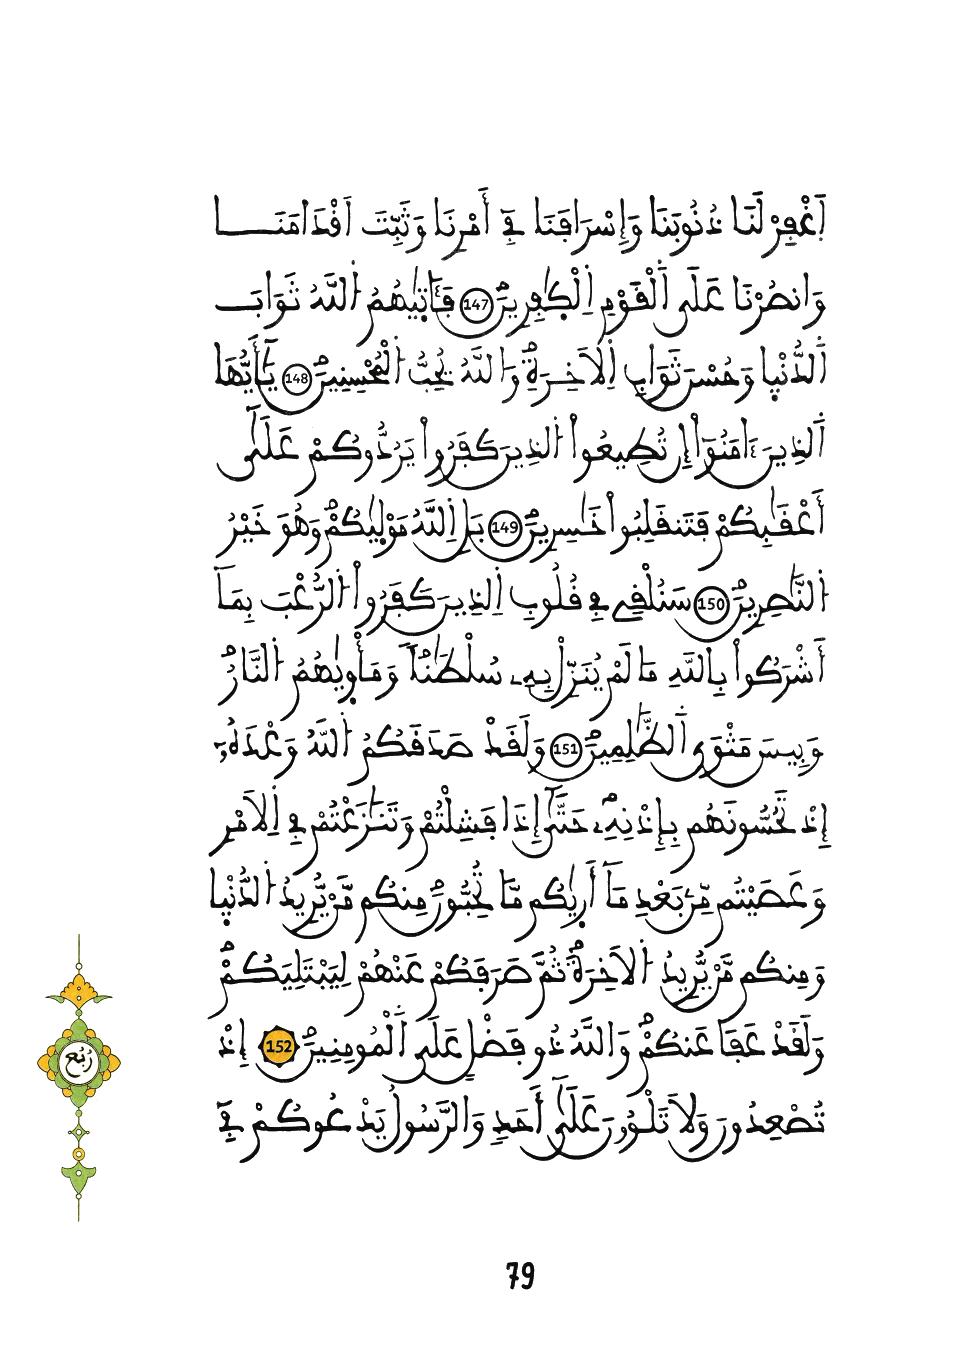 اَ۪غْفِرْ لَنَا ذُنُوبَنَا وَإِسْرَافَنَا فِےٓ أَمْرِنَا وَثَبِّتَ اَقْدَامَنَا
وَانصُرْنَا عَلَى اَ۬لْقَوْمِ اِ۬لْكٰفِرِينَۖ 147 فَـَٔاتٰيٰهُمُ اُ۬للَّهُ ثَوَابَ
اَ۬لدُّنْيٰا وَحُسْنَ ثَوَابِ اِ۬لَاخِرَةِۖ وَاللَّهُ يُحِبُّ اُ۬لْمُحْسِنِينَۖ 148 يَٰٓأَيُّهَا
اَ۬لذِينَ ءَامَنُوٓاْ إِن تُطِيعُواْ اُ۬لذِينَ كَفَرُواْ يَرُدُّوكُمْ عَلَىٰٓ
أَعْقَٰبِكُمْ فَتَنقَلِبُواْ خَٰسِرِينَۖ 149 بَلِ اِ۬للَّهُ مَوْلٰيٰكُمْۖ وَهُوَ خَيْرُ
اُ۬لنَّٰصِرِينَۖ 150 سَنُلْقِے فِے قُلُوبِ اِ۬لذِينَ كَفَرُواْ اُ۬لرُّعْبَ بِمَآ
أَشْرَكُواْ بِاللَّهِ مَا لَمْ يُنَزِّلْ بِهِۦ سُلْطَٰناٗ وَمَأْوٰيٰهُمُ اُ۬لنَّارُۖ
وَبِيسَ مَثْوَي اَ۬لظَّٰلِمِينَۖ 151 وَلَقَدْ صَدَقَكُمُ اُ۬للَّهُ وَعْدَهُۥٓ
إِذْ تَحُسُّونَهُم بِإِذْنِهِۦۖ حَتَّىٰٓ إِذَا فَشِلْتُمْ وَتَنَٰزَعْتُمْ فِے اِ۬لَامْرِ
وَعَصَيْتُم مِّنۢ بَعْدِ مَآ أَرٰيٰكُم مَّا تُحِبُّونَۖ مِنكُم مَّنْ يُّرِيدُ اُ۬لدُّنْيٰا
وَمِنكُم مَّنْ يُّرِيدُ اُ۬لَاخِرَةَۖ ثُمَّ صَرَفَكُمْ عَنْهُمْ لِيَبْتَلِيَكُمْۖ
وَلَقَدْ عَفَا عَنكُمْۖ وَاللَّهُ ذُو فَضْلٍ عَلَى اَ۬لْمُومِنِينَۖ 152 إِذْ
تُصْعِدُونَ وَلَا تَلْوُۥنَ عَلَىٰٓ أَحَدٖ وَالرَّسُولُ يَدْعُوكُمْ فِےٓ
ربع
79